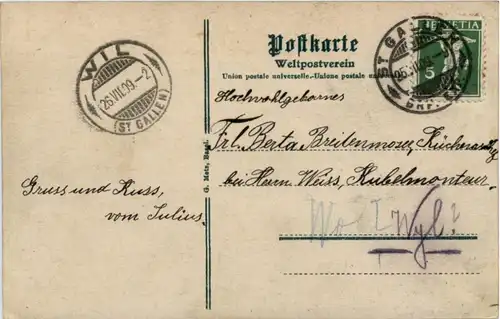 Postkarte
Weltpostverein
Union postale universelle.-Unione postale un
HELVETIA
5
ST. GALLEN
26.VII.09.
WIL
26.VII.09.-2
(ST GALLEN)
Hochwohlgebornes
Frl. Berta Breitenmoser,
bei Herrn Weiss, Kübelmonteur,
Wo? Wyl?
Gruss und Kuss,
vom Julius.
G. Metz, Basel.